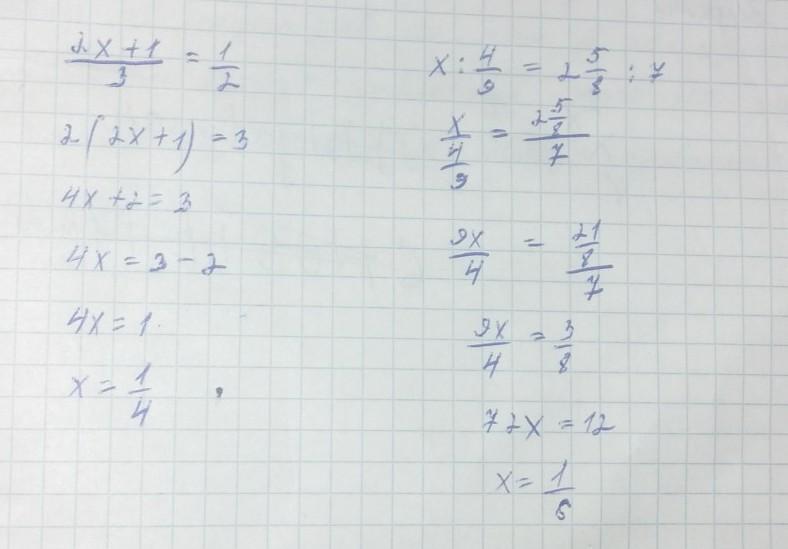 (2x + 1)/3 = 1/2
2(2x + 1) = 3
4x + 2 = 3
4x = 3 - 2
4x = 1
x = 1/4
x : 4/9 = 2 5/8 : 7
x/(4/9) = (2 5/8)/7
9x/4 = (21/8)/7
9x/4 = 3/8
72x = 12
x = 1/6